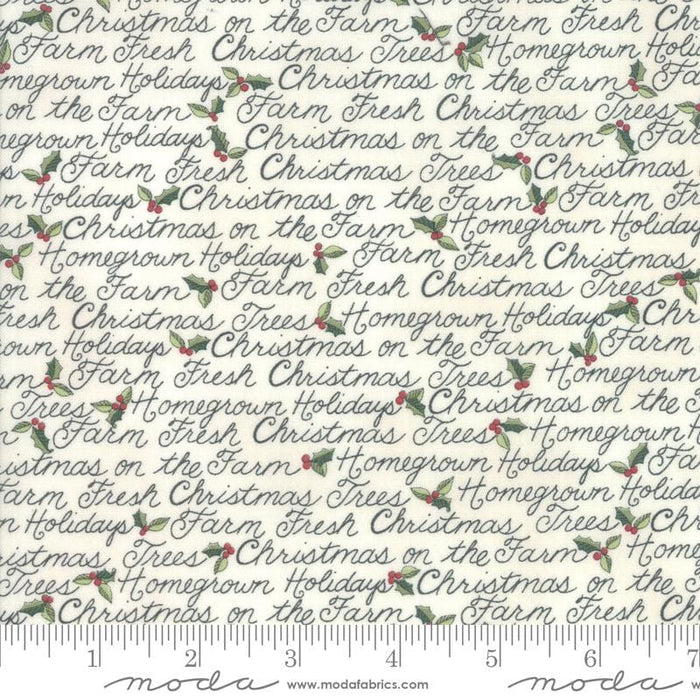 Homegrown Holidays Christmas
Christmas on the Farm Farm Fresh Chris
Farm Fresh Christmas Trees Homegrown Holi
megrown Holidays Christmas on the Farm
on the Farm Farm Fresh Christmas Trees
egrown Holidays Christmas on the Farm Fa
Farm Fresh Christmas Trees Christmas
Christmas on the Farm Farm
n Holidays Farm Fresh Christmas Trees
ees Christmas on the Farm Homegrown Holiday
Homegrown Holidays Farm Fresh Christmas
on the Farm Farm Fresh Christmas Trees
resh Christmas Trees Homegrown Holidays
own Holidays Christmas on the Farm Farm
rm Farm Fresh Christmas Trees Homegrown
Trees Homegrown Holidays Christmas on the
Farm Fresh Christmas Trees Homegrown
istmas on the Farm Homegrown Holidays Fa
Farm Fresh Christmas Trees Homegrown Holidays
n Holidays Farm Fresh Christmas Trees
istmas Trees Christmas on the Farm Home
Trees Homegrown Holidays Christmas on the
Christmas on the Farm Farm Fresh
1 2 3 4 5 6 7
moda www.modafabrics.com moda